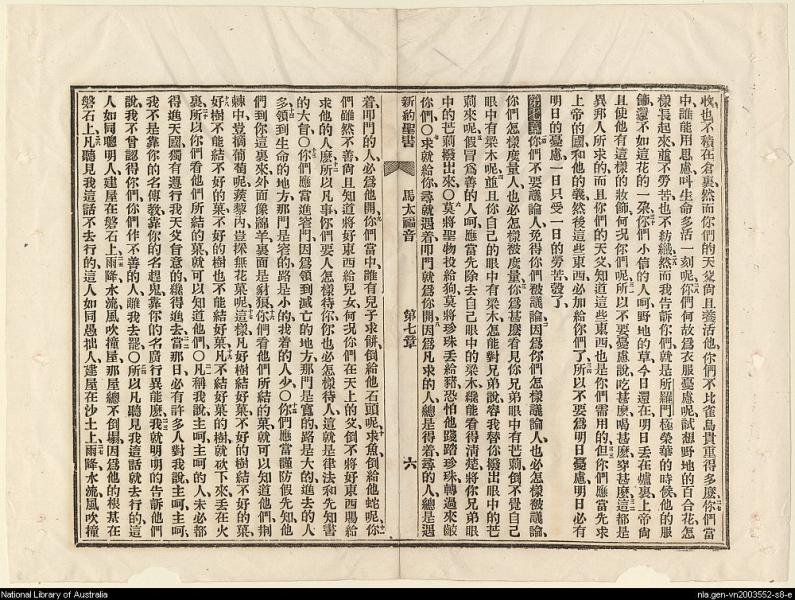 收、也不積在倉裏、然而你們的天父尙且養活他、你們不比雀鳥貴重得多麼、你們當
中、誰能用思慮、叫生命多活一刻呢、你們何故爲衣服憂慮呢、試想野地的百合花、怎
樣長起來、並不勞苦、也不紡織、然而我告訴你們、就是所羅門極榮華的時候、他的服
飾、還不如這花的一朶、你們小信的人呵、野地的草、今日還在、明日丢在爐裏、上帝尙
且使他有這樣的妝飾、何况你們呢、所以不要憂慮說、吃甚麼、喝甚麼、穿甚麼、這都是
異邦人所求的、而且你們的天父、知道這些東西、也是你們需用的、但你們應當先求
上帝的國、和他的義、然後這些東西、必加給你們了、所以不要爲明日憂慮、明日必有
明日的憂慮、一日只受一日的勞苦彀了、
第七章 你們不要議論人、免得你們被議論、因爲你們怎樣議論人、也必怎樣被議論、
你們怎樣度量人、也必怎樣被度量、你爲甚麼看見你兄弟眼中有芒䓡、倒不覺自己
眼中有梁木呢、並且你自己的眼中有梁木、怎能對兄弟說、容我替你撥出眼中的芒
䓡來呢、假冒爲善的人呵、應當先除去自己眼中的梁木、纔能看得淸楚、將你兄弟眼
中的芒䓡撥出來、〇莫將聖物投給狗、莫將珍珠丢給豬、恐怕他踐踏珍珠、轉過來齩
你們、〇求就給你、尋就遇着、叩門就爲你開、因爲凡求的人總是得着、尋的人總是遇
新約聖書 馬太福音 第七章 六
着、叩門的人必爲他開、你們當中、誰有兒子求餅、倒給他石頭呢、求魚、倒給他蛇呢、你
們雖然不善、尙且知道將好東西給兒女、何况你們在天上的父、倒不將好東西賜給
求他的人麼、所以凡事你們要人怎樣待你、你也必怎樣待人、這就是律法和先知書
的大旨、〇你們應當進窄門、因爲領到滅亡的地方、那門是寬的、路是大的、進去的人
多、領到生命的地方、那門是窄的、路是小的、找着的人少、〇你們應當謹防假先知、他
們到你這裏來、外面像綿羊、裏面是豺狼、你們看他們所結的菓、就可以知道他們、荆
棘中豈摘葡萄呢、蒺藜內豈採無花菓呢、這樣凡好樹結好菓、不好的樹結不好的菓、
好樹不能結不好的菓、不好的樹也不能結好菓、凡不結好菓的樹、就砍下來丢在火
裏、所以你們看他們所結的菓、就可以知道他們、〇凡稱我說、主呵主呵的人、未必都
得進天國、獨有遵行我天父旨意的、纔得進去、當那日、必有許多人對我說、主呵主呵、
我不是靠你的名傳敎、靠你的名趕鬼、靠你的名廣行異能麼、我就明明的告訴他們
說、我不曾認得你們、你們作不善的人、離我去罷、〇所以凡聽見我這話就去行的、這
人如同聰明人、建屋在磐石上、雨降、水流、風吹、撞那屋、總不倒塌、因爲他的根基在
磐石上、凡聽見我這話不去行的、這人如同愚拙人、建屋在沙土上、雨降、水流、風吹、撞
National Library of Australia
nla.gen-vn2003552-s8-e